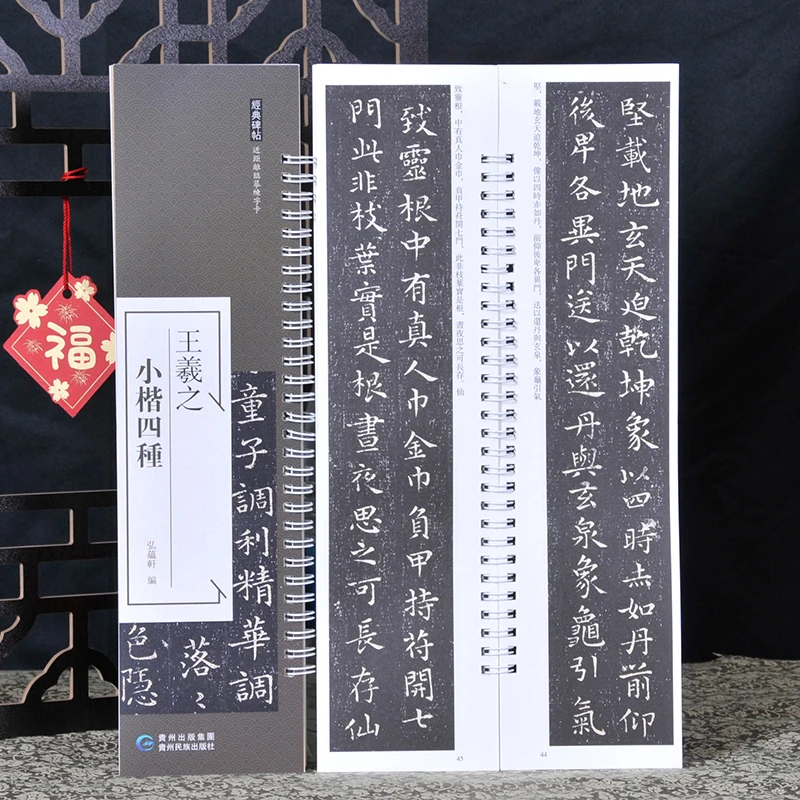 福
經典碑帖
近距離臨摹練字卡
王羲之
小楷四種
弘蘊軒 編
童子調利精華調
落〻
色隱
貴州出版集團
貴州民族出版社
堅載地玄天迫乾坤象以四時赤如丹前仰
後卑各異門送以還丹與玄泉象龜引氣
堅，載地玄天迫乾坤。像以四時赤如丹，前仰後卑各異門。送以還丹與玄泉，象龜引氣
44
致靈根。中有真人巾金巾，負甲持符開七門。此非枝葉實是根，晝夜思之可長存。仙
致靈根中有真人巾金巾負甲持符開七
門此非枝葉實是根晝夜思之可長存仙
45